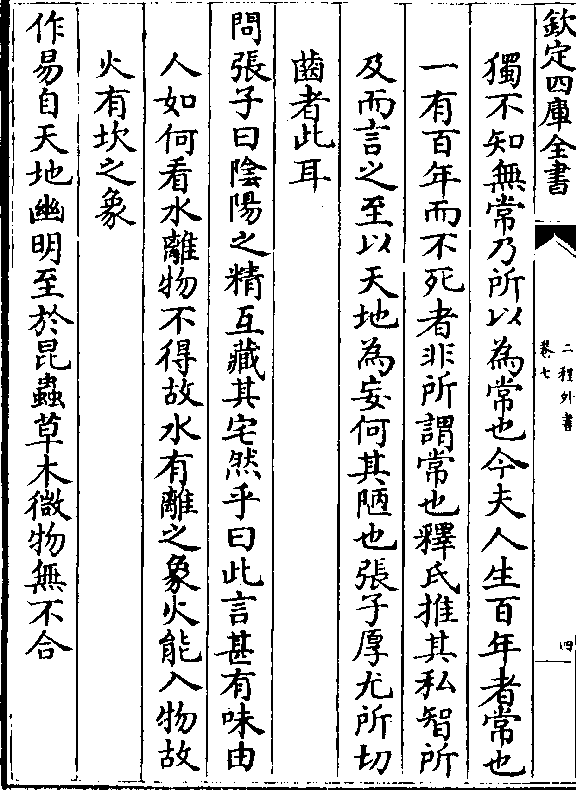 欽定四庫全書
二程外書
卷七
四
獨不知無常乃所以為常也今夫人生百年者常也
一有百年而不死者非所謂常也釋氏推其私智所
及而言之至以天地為妄何其陋也張子厚尤所切
齒者此耳
問張子曰陰陽之精互藏其宅然乎曰此言甚有味由
人如何看水離物不得故水有離之象火能入物故
火有坎之象
作易自天地幽明至於昆蟲草木微物無不合